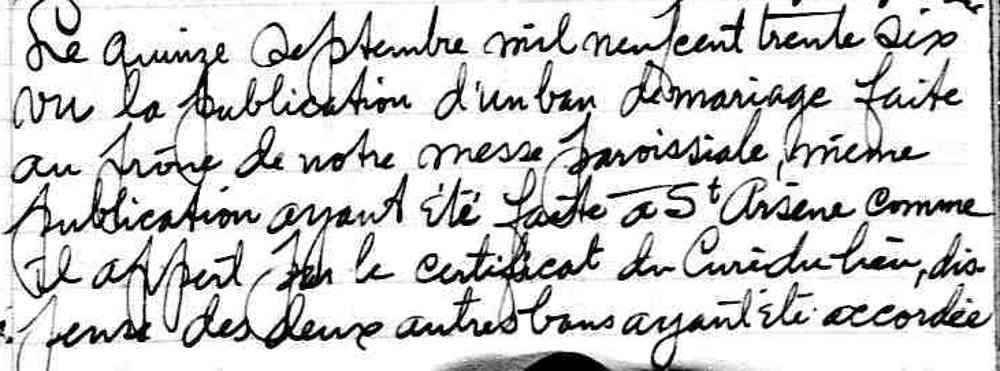 Le quinze septembre mil neuf cent trente six
vu la publication d'un ban de mariage faite
au prône de notre messe paroissiale, même
publication ayant été faite à St Arsène comme
il appert par le certificat du Curé du lieu, dis-
pense des deux autres bans ayant été accordée